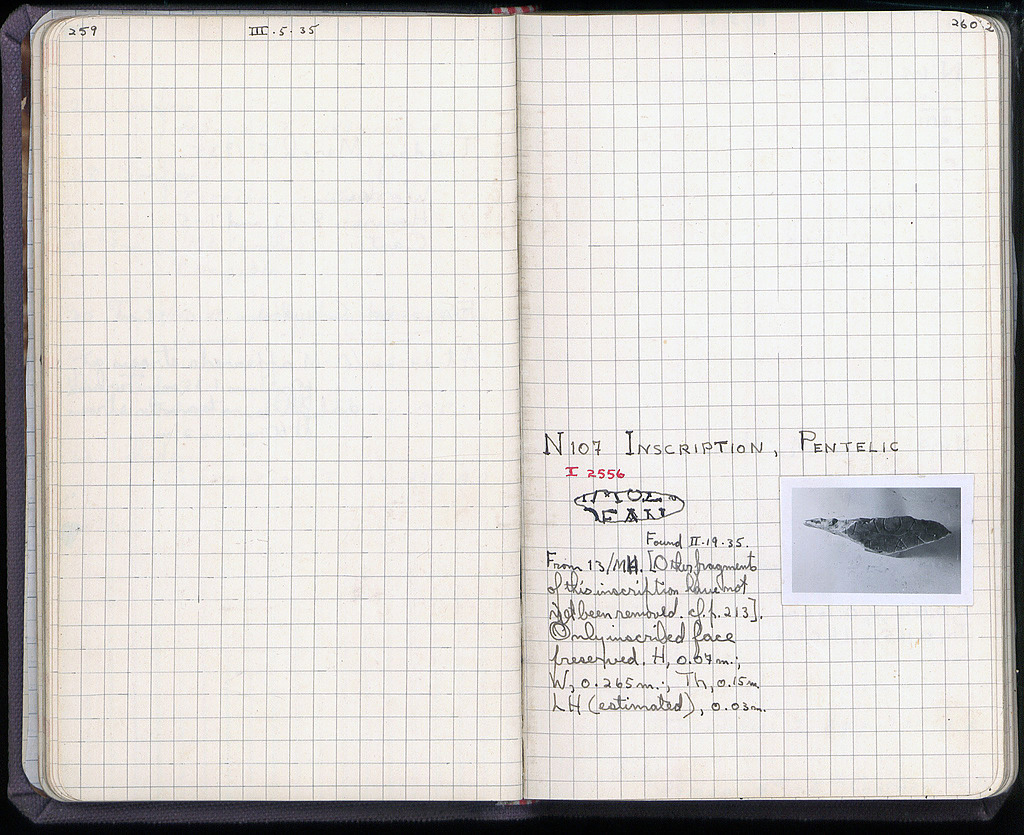 259
III.5.35
260
N107 INSCRIPTION, PENTELIC
I 2556
ΕΑΝ
Found II.19.35.
From 13/ΜΗ. [Other fragments
of this inscription have not
yet been removed. cf. p. 213].
Only inscribed face
preserved. H, 0.07m.;
W, 0.265m.; Th, 0.15m
LH (estimated), 0.03m.